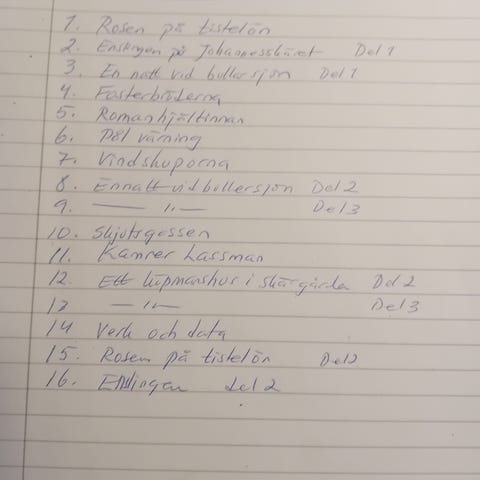 1. Rosen på tistelön
2. Enslingen på Johannesskäret Del 1
3. En natt vid bullersjön Del 1
4. Fosterbröderna
5. Romanhjältinnan
6. Pål värning
7. Vindskuporna
8. En natt vid bullersjön Del 2
9. — " — Del 3
10. Skjutsgossen
11. Kamrer Lassman
12. Ett köpmanshus i skärgården Del 2
13 — " — Del 3
14 Verk och data
15. Rosen på tistelön Del 2
16. Enslingen del 2